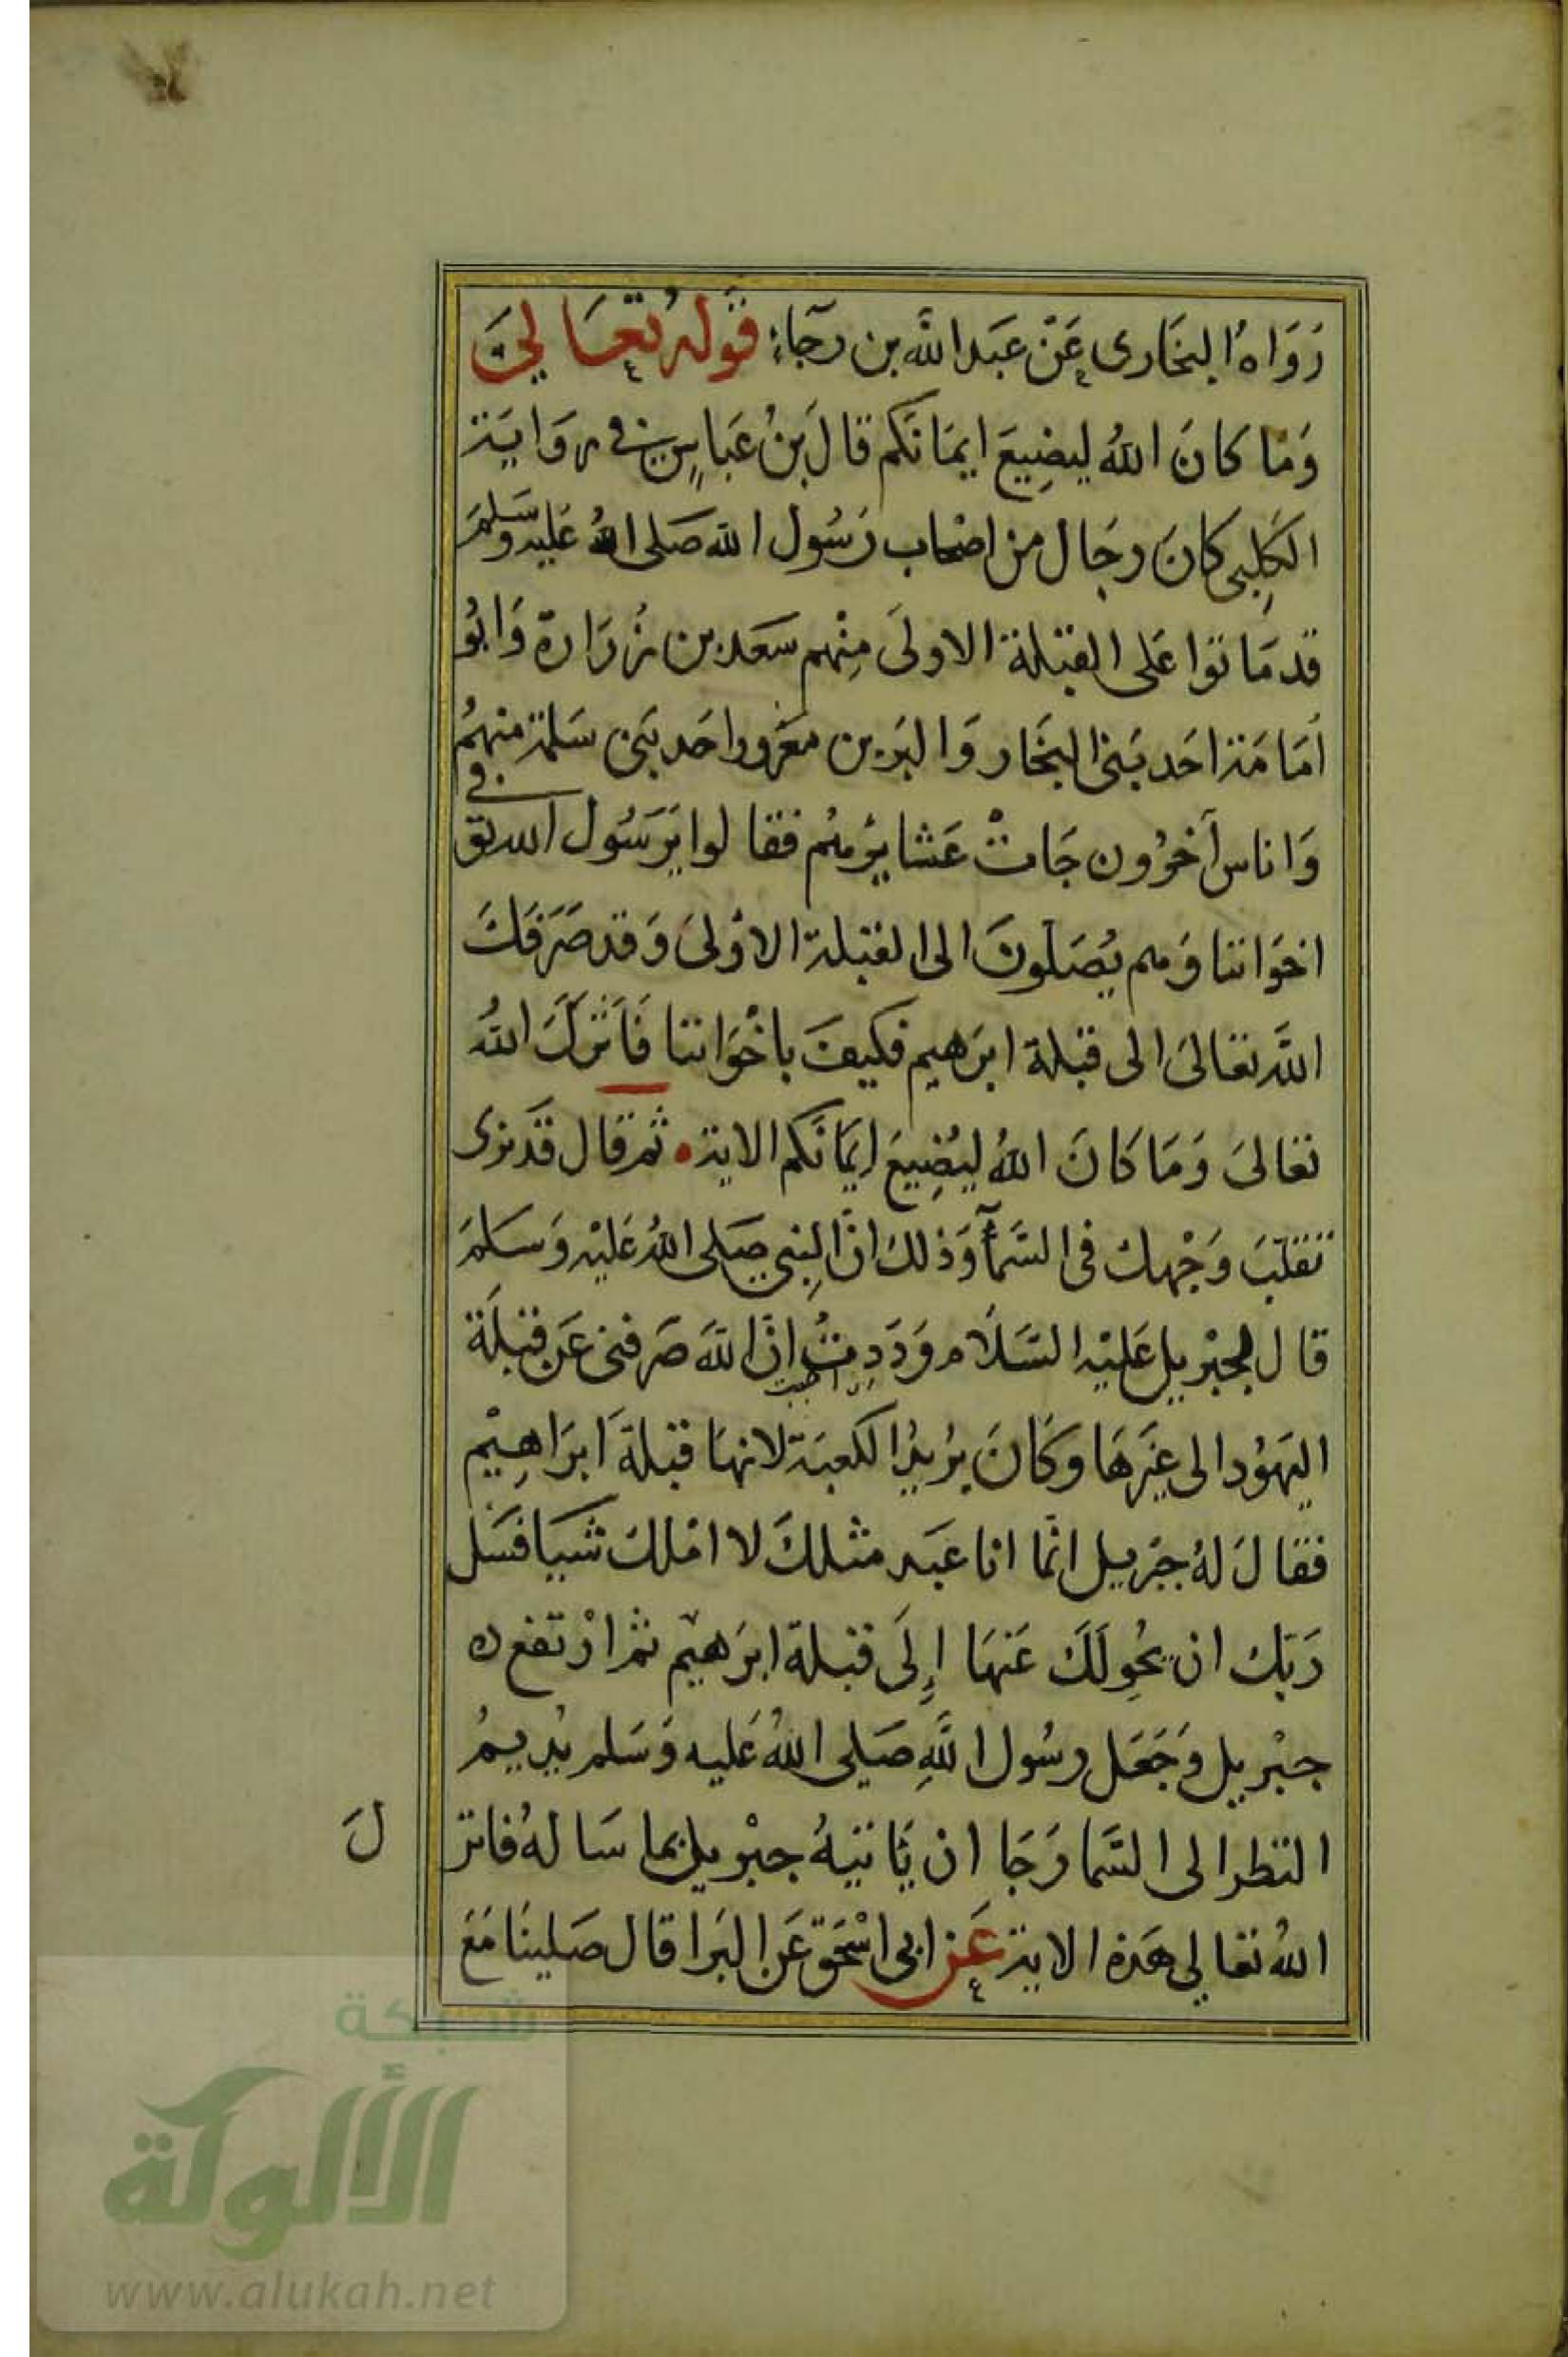 رَوَاهُ البخَارى عَنْ عَبد اللَّه بن رجَآءٍ قَولهُ تعَالىَ
وَمَا كانَ اللهُ ليضِيعَ ايمَانكم قالَ بنُ عَباسٍ فى روَايَة
الكَلِبى كانَ رجَال من اصْحاب رَسُول الله صَلى اللهُ عَليه وَسَلمَ
قد مَاتوا عَلى القبْلة الاولىَ مِنْهم سَعَد بن زُرَارة وَابُو
اُمَامَة احَد بَنى النجَار وَالبَر بن مَعْرور احَد بَنى سَلمَة منهمُ
وَاناس آخرُون جَاتْ عَشايرُهم فقالوا يَرَسُول الله توفى
اخوَاننا وَهم يُصَلونَ الى القبْلة الاوْلىَ وَقد صَرَفَكَ
اللَّه تعَالىَ الى قبْلة ابرَهيم فكيفَ باخْوَاننا فَاَنزَلَ اللهُ
تعَالىَ وَمَا كَانَ اللهُ ليُضِيعَ اِيمَانَكم الاية • ثم قال قَد نرَى
تقَلبَ وَجْهك فى السَّمآءِ وَذلك انَّ النبِى صَلى اللهُ عَليْه وَسَلمَ
قال لجبْريل عَليْه السَّلَام وَدَدِتُ انَّ اللهَ صَرفنى عَن قبْلَة
احببت
اليَهوُد الى غَيرهَا وَكانَ يرُيدُ الكعبَة لانهَا قبْلةَ ابرَاهِيْم
فقالَ لهُ جبْريل انَّما انا عَبد مثلكَ لا امْلك شَييا فسَل
رَبَك ان يحُولَكَ عَنهَا اِلَى قبْلة ابرَهيْم ثم ارْتفع ه
جبْريل وَجَعَل رسُول اللَّهِ صَلى اللهُ عَليه وَسَلم يُديمُ
النظر الى السَّما رَجَا ان يَاتيَهُ جبْريل بما سَالهُ فانز
لَ
اللهُ تعَالي هَذه الاية عَن ابى اسْحَق عَن البَرا قال صَلينَا مَعَ
شبكة
الألوكة
www.alukah.net